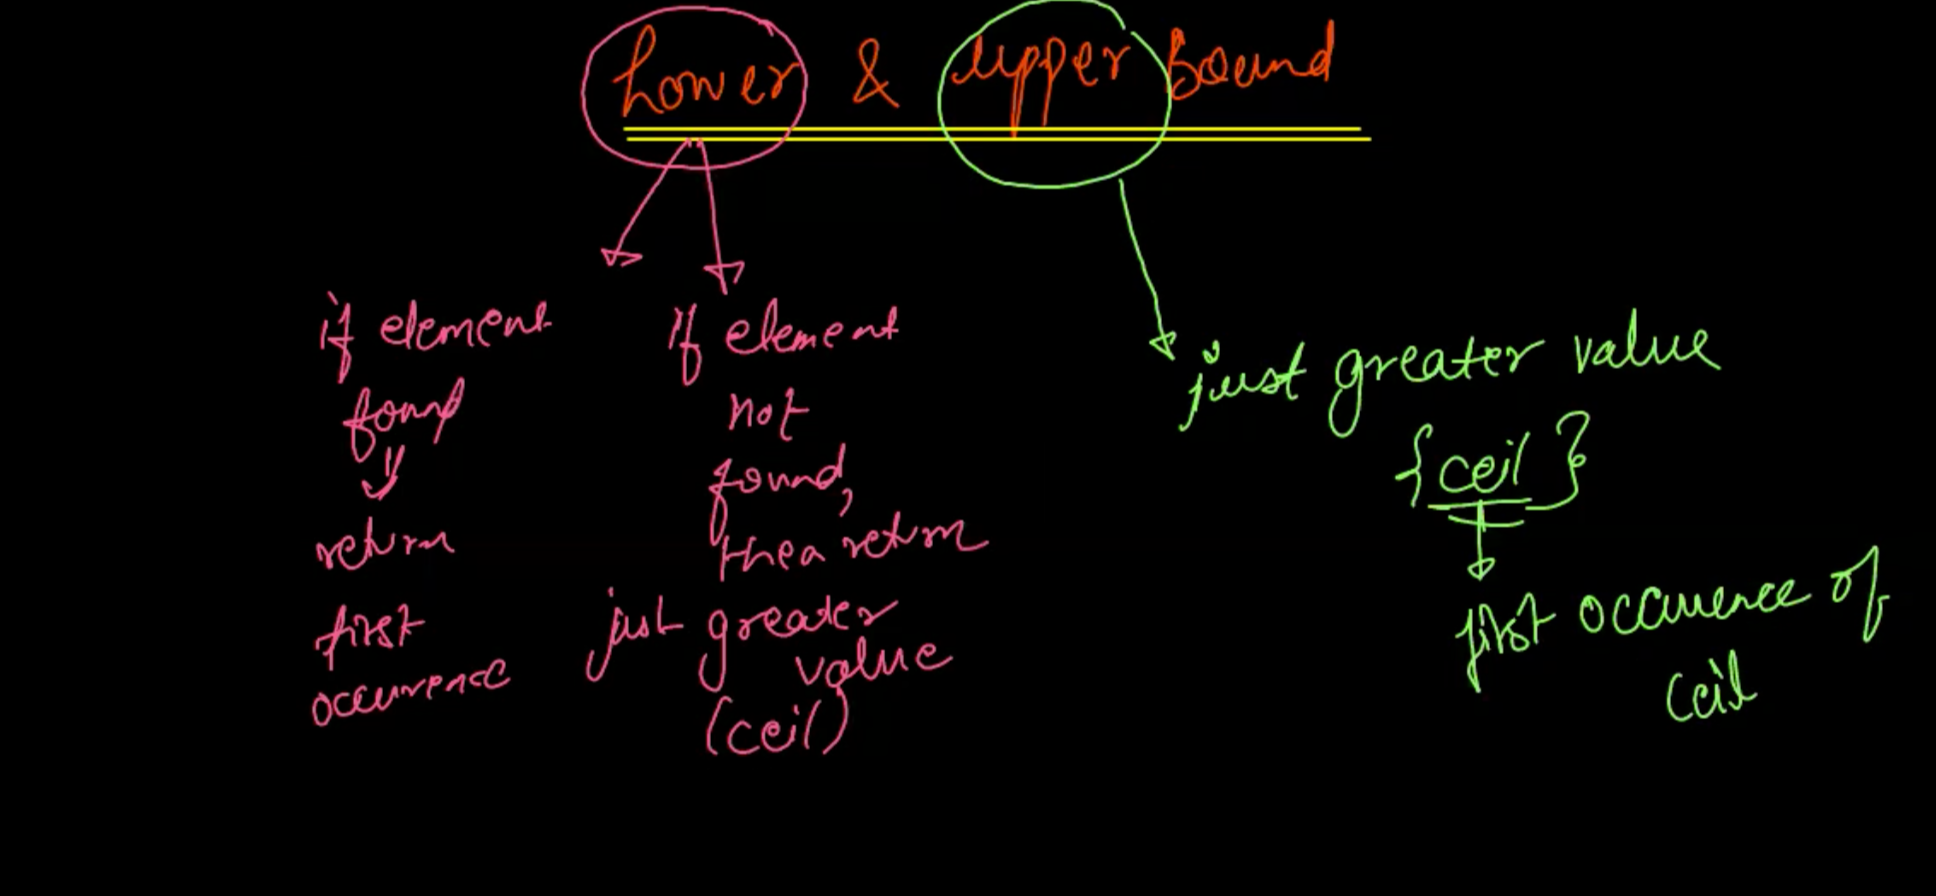 Lower & Upper Bound
if element
found
return
first
occurrence
If element
not
found,
then return
just greater
value
(ceil)
just greater value
{ceil}
first occurrence of
ceil